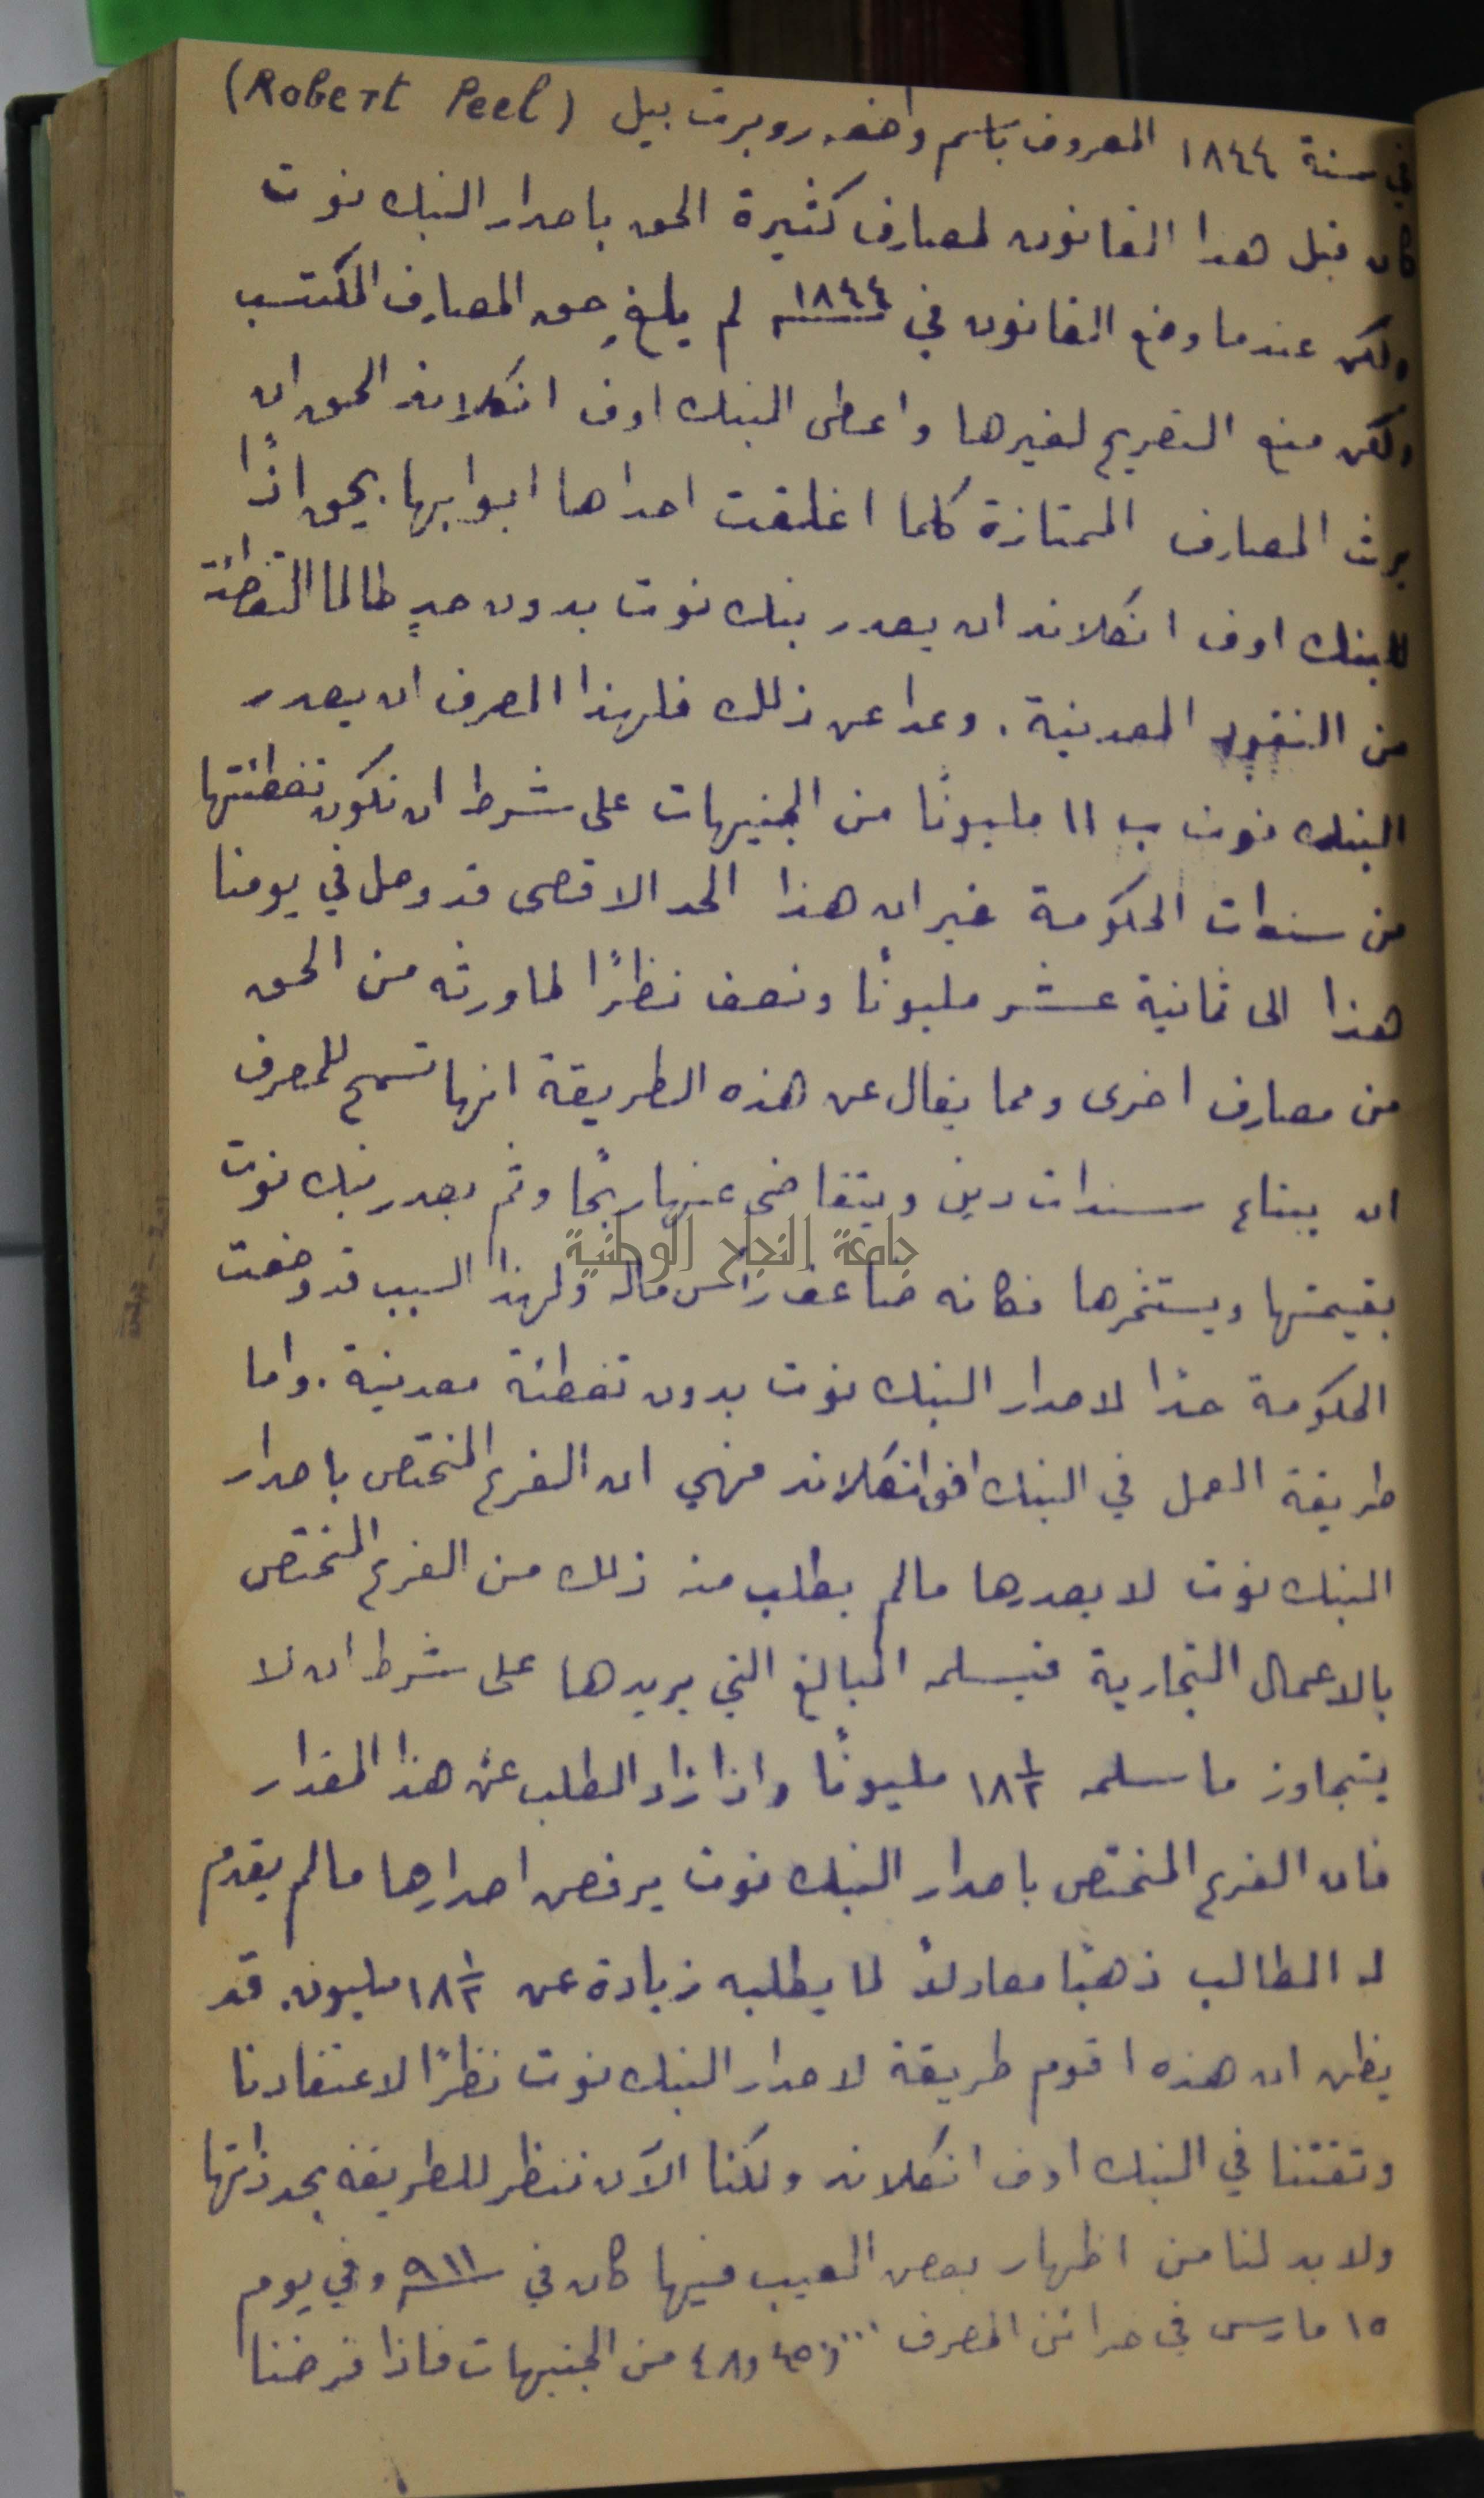 في سنة ١٨٤٤ المعروف باسم واضعه روبرت بيل (Robert Peel)
كان قبل هذا القانون لمصارف كثيرة الحق باصدار البنك نوت
ولكن عندما وضع القانون في ١٨٤٤ لم يلغِ حق المصارف المكتسب
ولكن منع التصريح لغيرها واعطى البنك اوف انكلاند الحق ان
يرث المصارف الممتازة كلما اغلقت احداها ابوابها. يحق اذًا
للبنك اوف انكلاند ان يصدر بنك نوت بدون حدٍ طالما التغطئة
من النقود المعدنية. وعدا عن ذلك فلهذا المصرف ان يصدر
البنك نوت ب ١١ مليونًا من الجنيهات على شرط ان تكون تغطئتها
من سندات الحكومة غير ان هذا الحد الاقصى قد وصل في يومنا
هذا الى ثمانية عشر مليونًا ونصف نظرًا لما ورثه من الحق
من مصارف اخرى ومما يقال عن هذه الطريقة انها تسمح للمصرف
ان يبتاع سندات دين ويتقاضى عنها ربحًا وثم يصدر بنك نوت
جامعة النجاح الوطنية
بقيمتها ويستثمرها فكانه ضاعف رأس ماله ولهذا السبب قد وضعت
الحكومة حدًا لاصدار البنك نوت بدون تغطئة معدنية. واما
طريقة العمل في البنك اوف انكلاند فهي ان الفرع المختص باصدار
البنك نوت لا يصدرها مالم يطلب منه ذلك من الفرع المختص
بالاعمال التجارية فيسلمه المبالغ التي يريدها على شرط ان لا
يتجاوز ما سلمه ١٨ ١/٢ مليونًا واذا زاد الطلب عن هذا المقدار
فان الفرع المختص باصدار البنك نوت يرفض اصدارها مالم يقدم
له الطالب ذهبًا معادلًا لما يطلبه زيادة عن ١٨ ١/٢ مليون. قد
يظن ان هذه اقوم طريقة لاصدار البنك نوت نظرًا لاعتقادنا
وثقتنا في البنك اوف انكلاند ولكنا الآن ننظر للطريقة بحد ذاتها
ولا بد لنا من اظهار بعض العيب فيها كان في ٩١١ وفي يوم
١٥ مارس في خزائن المصرف من الجنيهات فاذا فرضنا